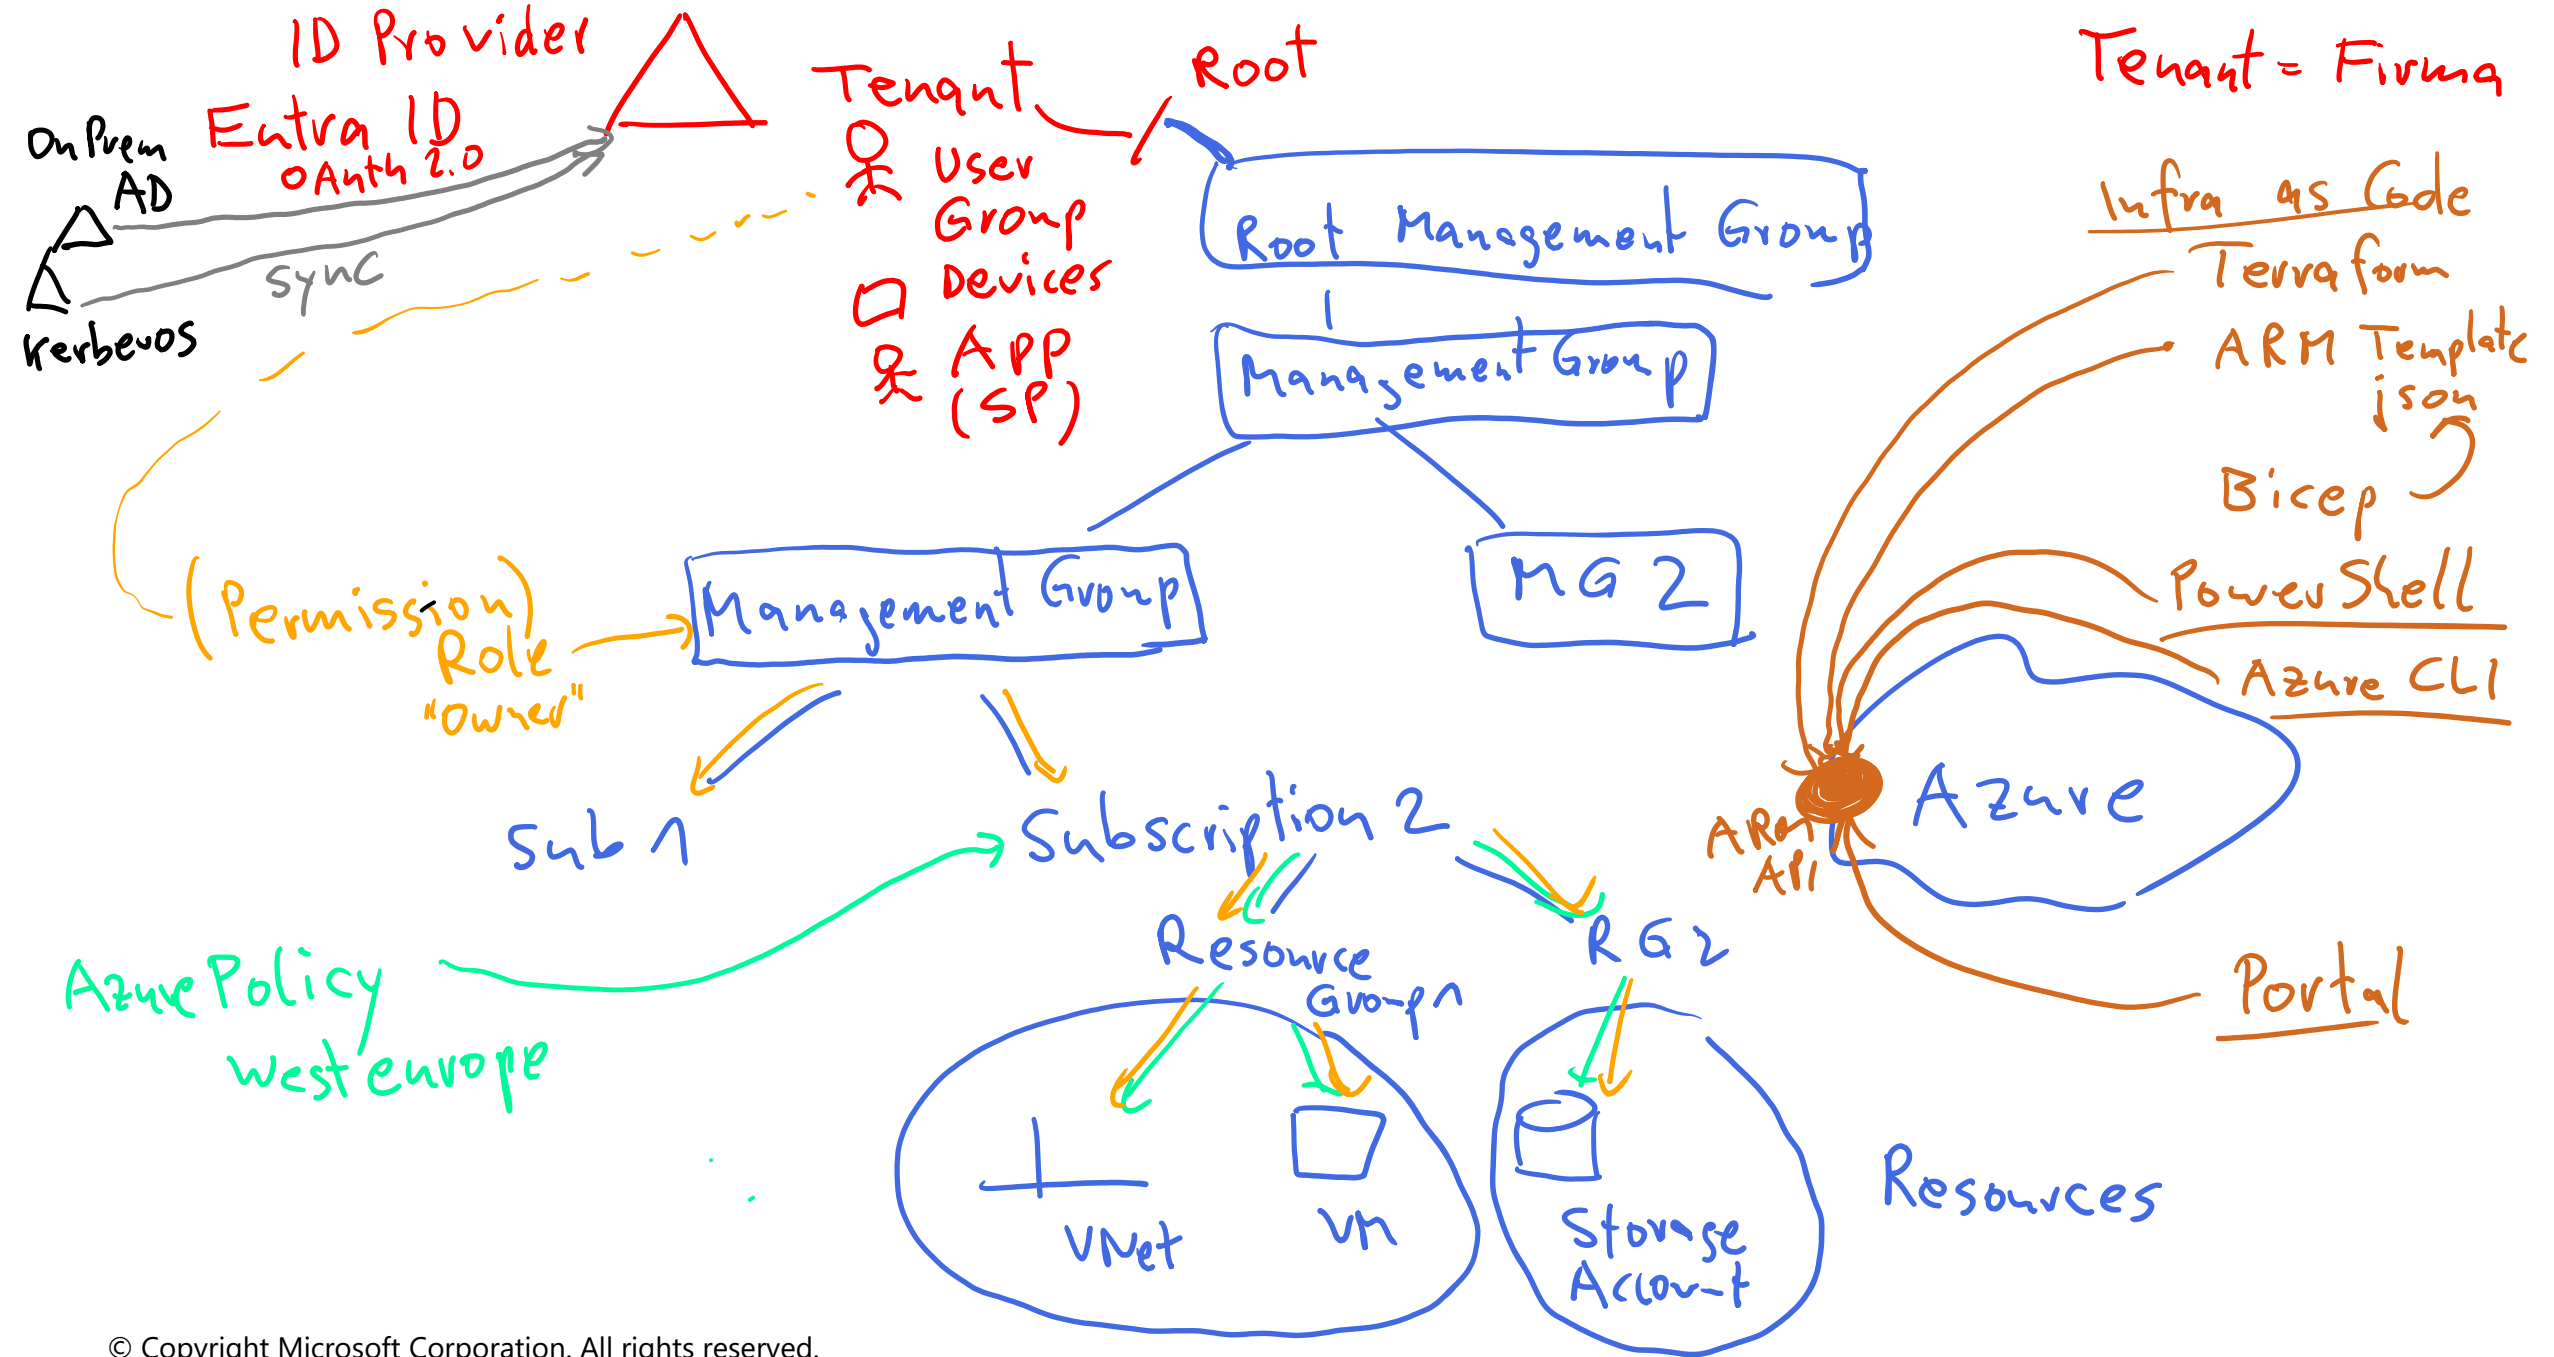 ID Provider
Entra ID
oAuth 2.0
On Prem
AD
sync
Kerberos
Tenant
User
Group
Devices
App
(SP)
Root
Root Management Group
Management Group
Management Group
MG 2
(Permission)
Role
"Owner"
Sub 1
Subscription 2
Azure Policy
west europe
Resource
Group 1
RG 2
VNet
VM
Storage
Account
Resources
Tenant = Firma
Infra as Code
Terraform
ARM Template
json
Bicep
PowerShell
Azure CLI
Azure
ARM
API
Portal
© Copyright Microsoft Corporation. All rights reserved.